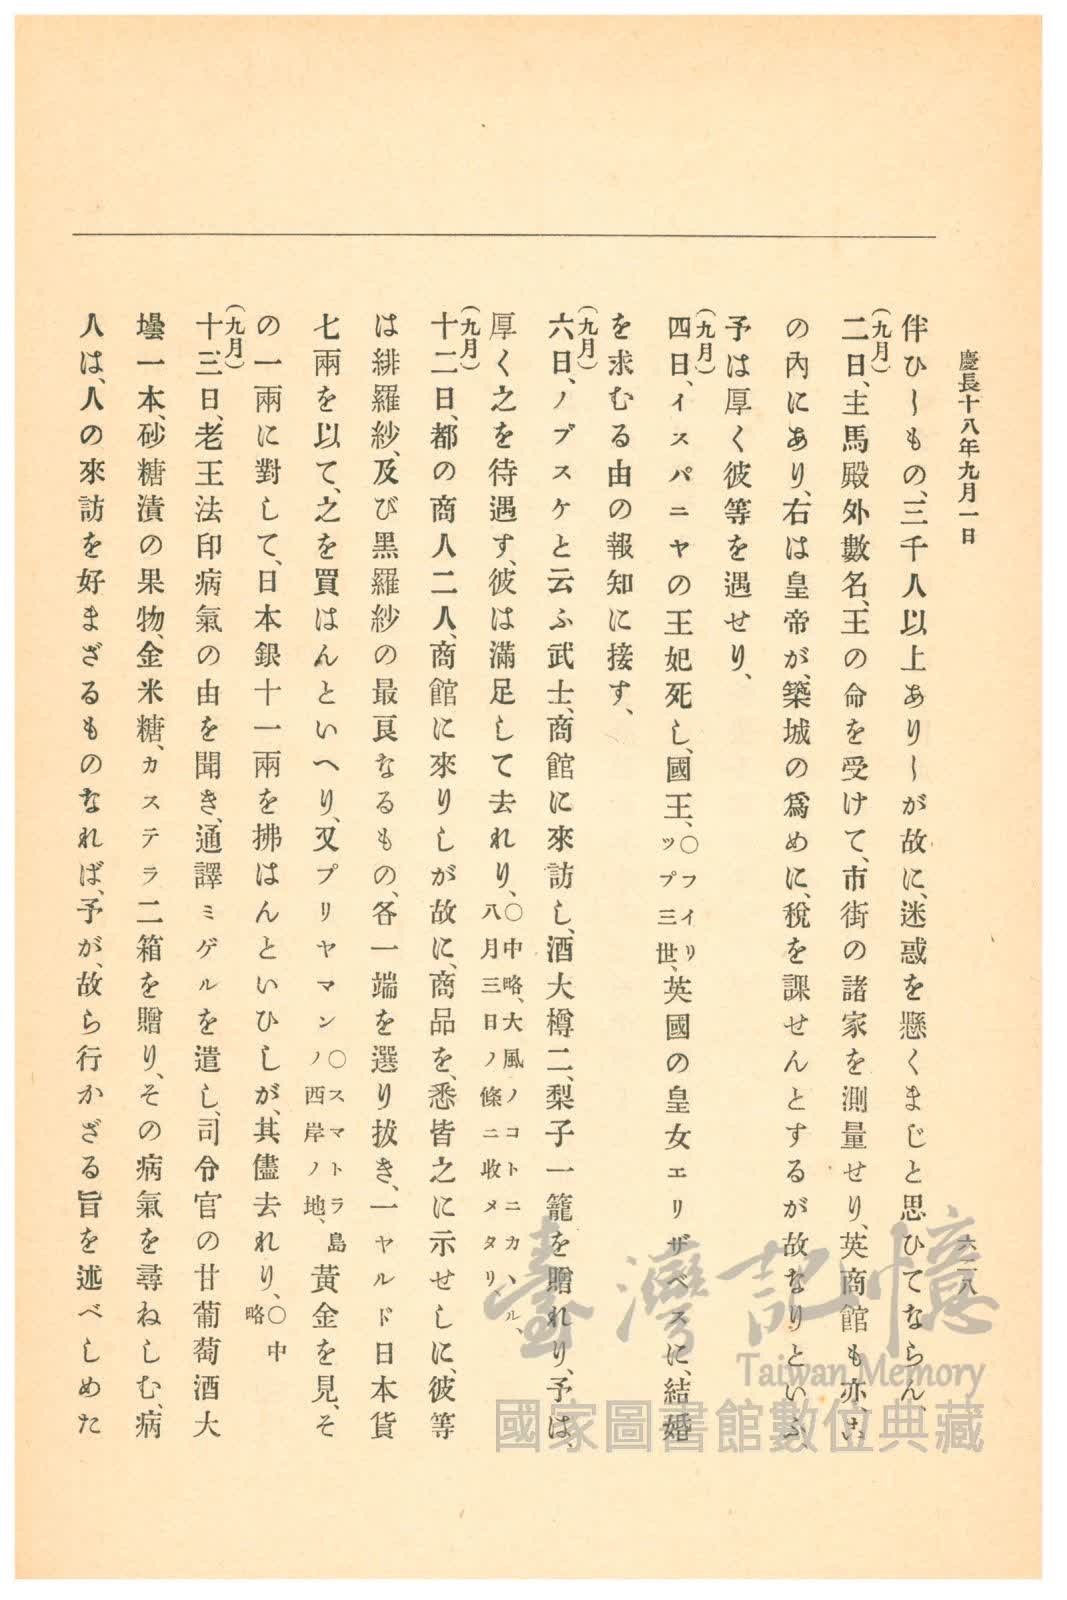 慶長十八年九月一日
六二八
伴ひしもの、三千人以上ありしが故に、迷惑を懸くまじと思ひてならん、
(九月)
二日、主馬殿外數名、王の命を受けて、市街の諸家を測量せり、英商館も亦、こ
の內にあり、右は皇帝が、築城の爲めに、稅を課せんとするが故なりといふ、
予は厚く彼等を遇せり、
(九月)
四日、イスパニヤの王妃死し、國王、○フイリツプ三世、英國の皇女エリザベスに、結婚
を求むる由の報知に接す、
(九月)
六日、ノブスケと云ふ武士、商館に來訪し、酒大樽二、梨子一籠を贈れり、予は、
厚く之を待遇す、彼は滿足して去れり、○中略、大風ノコトニカヽル、八月三日ノ條ニ收メタリ、
(九月)
十二日、都の商人二人、商館に來りしが故に、商品を、悉皆之に示せしに、彼等
は緋羅紗、及び黑羅紗の最良なるもの、各一端を選り拔き、一ヤルド日本貨
七兩を以て、之を買はんといへり、又プリヤマンノ○スマトラ島西岸ノ地、黃金を見、そ
の一兩に對して、日本銀十一兩を拂はんといひしが、其儘去れり、○中略
(九月)
十三日、老王法印病氣の由を聞き、通譯ミゲルを遣し、司令官の甘葡萄酒大
壜一本、砂糖漬の果物、金米糖、カステラ二箱を贈り、その病氣を尋ねしむ、病
人は、人の來訪を好まざるものなれば、予が、故ら行かざる旨を述べしめた
臺灣記憶
Taiwan Memory
國家圖書館數位典藏